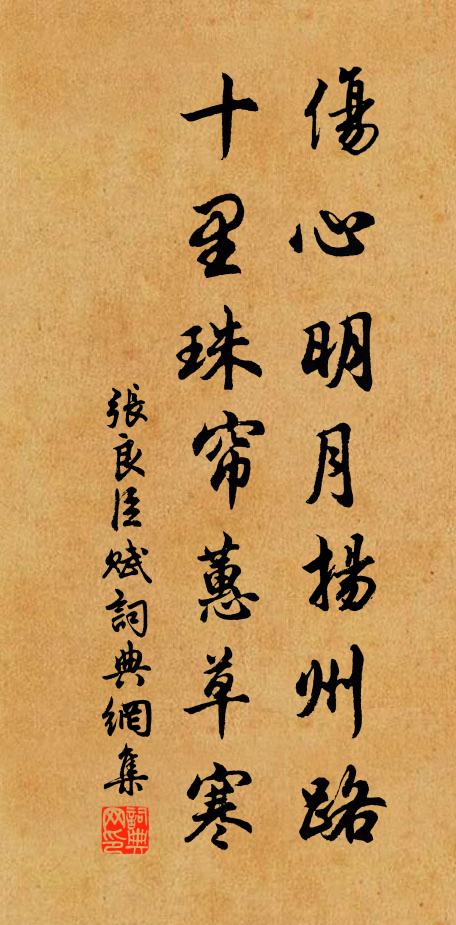 傷心明月揚州路
十里珠帘蕙草寒
張良臣賦詞典網集
詞典
网印